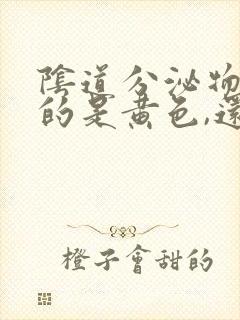 陰道分泌物
的是黄色,還
橙子會甜的